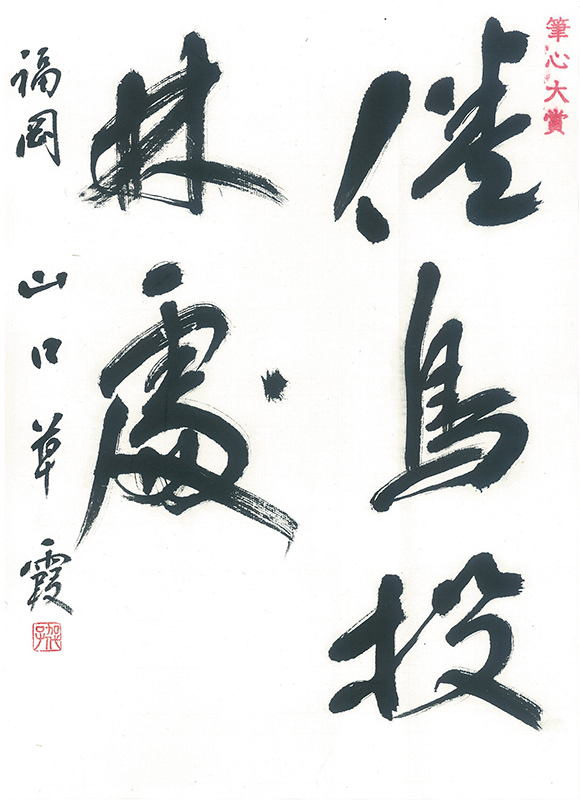 筆心大賞
倦鳥投
林處
福岡 山口草霞